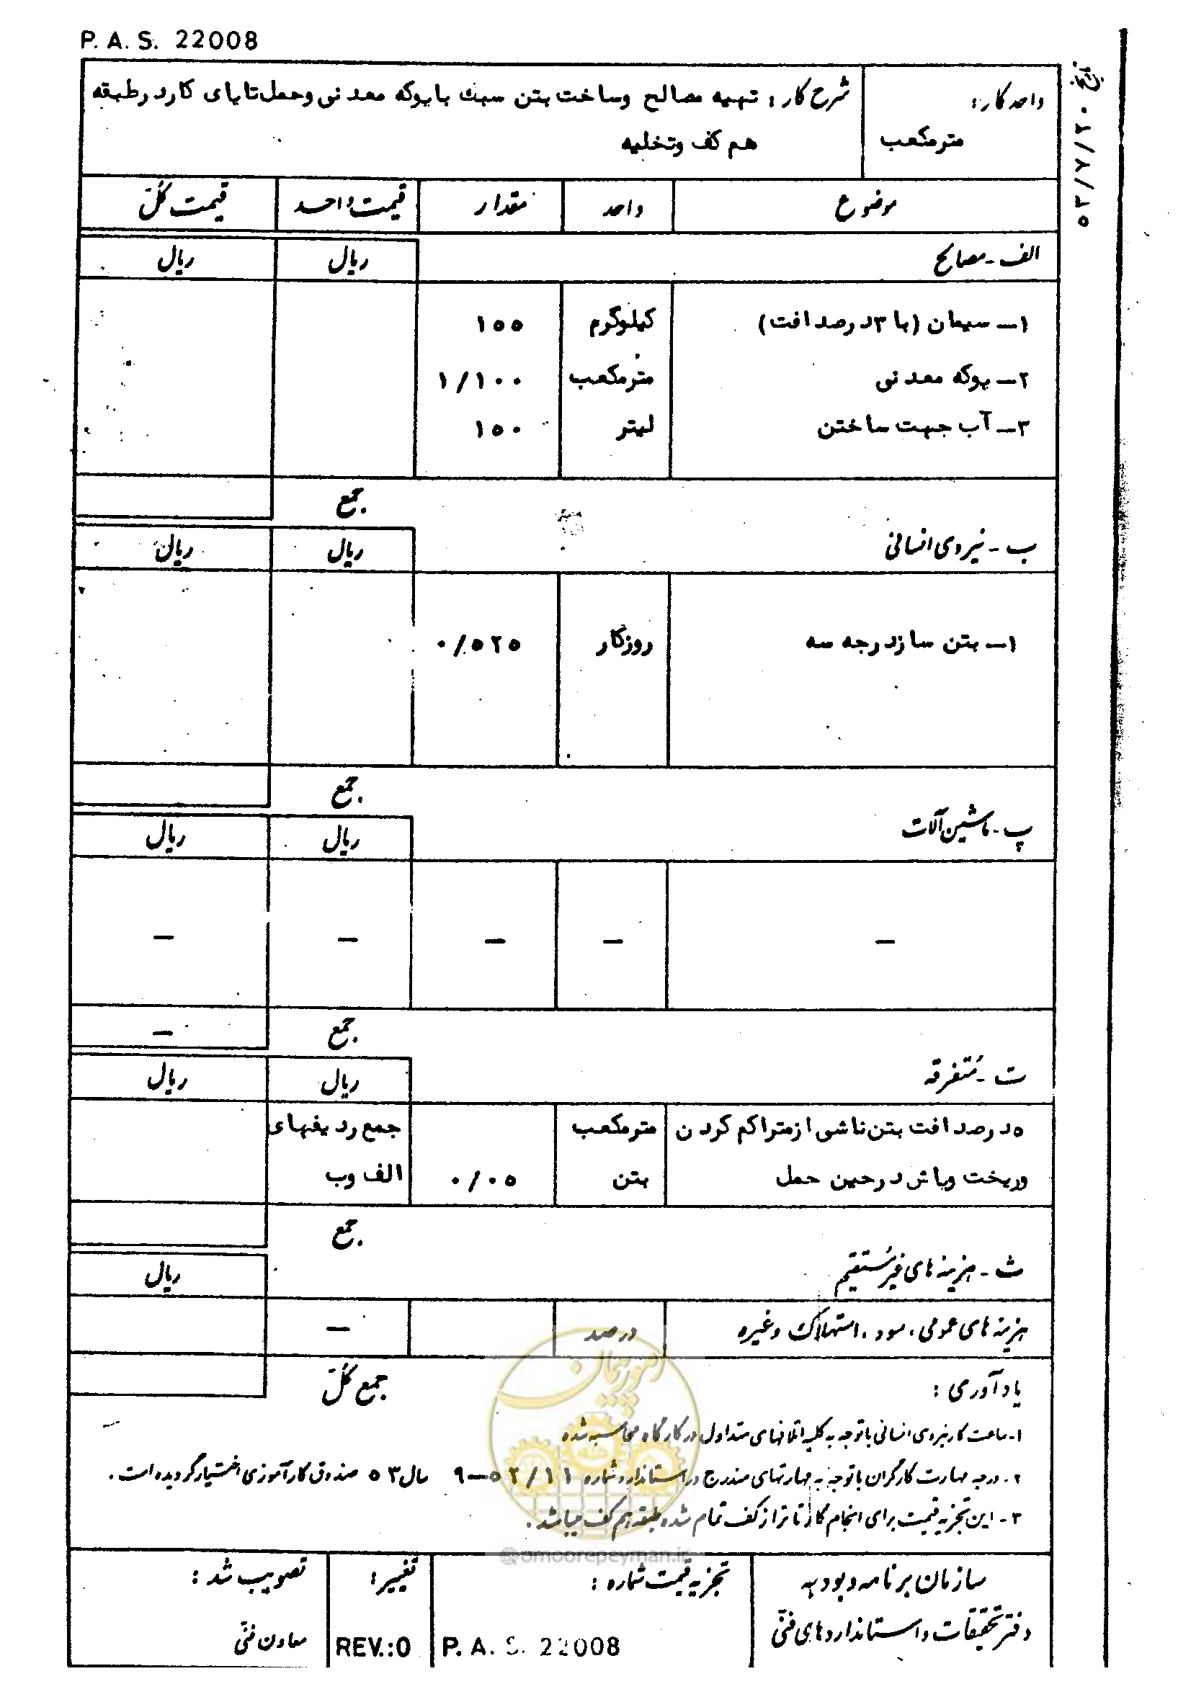 P. A. S. 22008
تاریخ ۵۳/۷/۲۰
واحد کار :
مترمکعب
شرح کار : تهیه مصالح وساخت بتن سبك با پوکه معد نی وحمل تا پای کارد رطبقه
هم کف وتخلیه
موضوع واحد مقدار قیمت واحد قیمت کل
الف - مصالح ریال ریال
۱ــ سیمان (با ۳د رصد افت) کیلوگرم ۱۵۵
۲ــ پوکه معد نی مترمکعب ۱/۱۰۰
۳ــ آب جهت ساختن لیتر ۱۵۰
جمع
ب - نیروی انسانی ریال ریال
۱ــ بتن سا زد رجه سه روزکار ۰/۵۲۵
جمع
پ - ماشین آلات ریال ریال
ــ ــ ــ ــ ــ
جمع ــ
ت - متفرقه ریال ریال
۵د رصد افت بتن ناشی ا زمتراکم کرد ن مترمکعب جمع رد یفهای
وریخت وپاش د رحین حمل بتن ۰/۰۵ الف وب
جمع
ث - هزینه های غیرمستقیم ریال
هزینه های عمومی ، سود ، استهلاک وغیره درصد ــ
جمع کل
یادآوری :
۱- ساعت کار نیروی انسانی با توجه به کلیه اتلافهای متداول در کارگاه محاسبه شده
۲- درجه مهارت کارگران با توجه به مهارتهای مندرج در استاندارد شماره ۵۲/۱۱–۹ سال ۵۳ صندوق کارآموزی اختیار گردیده است .
۳- این تجزیه قیمت برای انجام کار تا تراز کف تمام شده طبقه هم کف میباشد .
امور پیمان
@omoorepeyman.ir
سازمان برنامه و بودجه
دفتر تحقیقات و استانداردهای فنی
تجزیه قیمت شماره :
P. A. S. 22008
تغییر :
REV.:0
تصویب شد :
معاون فنی